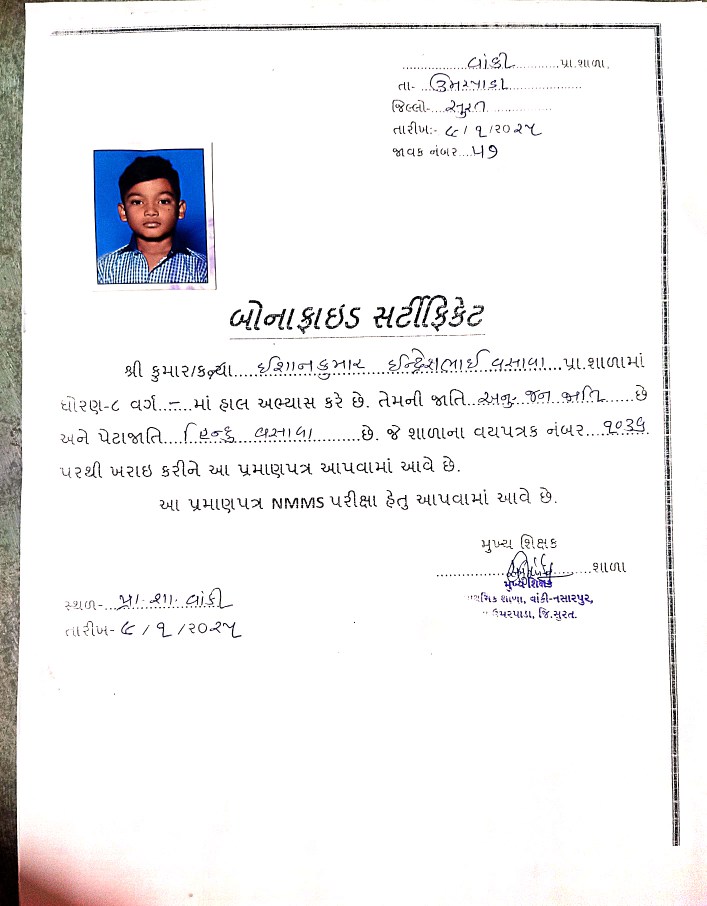 ................વાંકી............પ્રા.શાળા,
તા-...ઉમરપાડા..................
જિલ્લો-....સુરત................
તારીખ:- ૯/૧/૨૦૨૫
જાવક નંબર....૫૭
બોનાફાઇંડ સર્ટીફિકેટ
શ્રી કુમાર/કન્યા....ઈશાનકુમાર ઇન્દ્રેશભાઈ વસાવા...પ્રા.શાળામાં
ધોરણ-૮ વર્ગ .–.. માં હાલ અભ્યાસ કરે છે. તેમની જાતિ ..અનુ. જન જાતિ......છે
અને પેટાજાતિ ...હિન્દુ વસાવા.........છે. જે શાળાના વયપત્રક નંબર...૧૦૩૬
પરથી ખરાઇ કરીને આ પ્રમાણપત્ર આપવામાં આવે છે.
આ પ્રમાણપત્ર NMMS પરીક્ષા હેતુ આપવામાં આવે છે.
મુખ્ય શિક્ષક
................................શાળા
મુખ્ય શિક્ષક
સ્થળ-..પ્રા. શા. વાંકી
પ્રાથમિક શાળા, વાંકી-નસારપુર,
તા.ઉમરપાડા, જિ.સુરત.
તારીખ- ૯/૧/૨૦૨૫